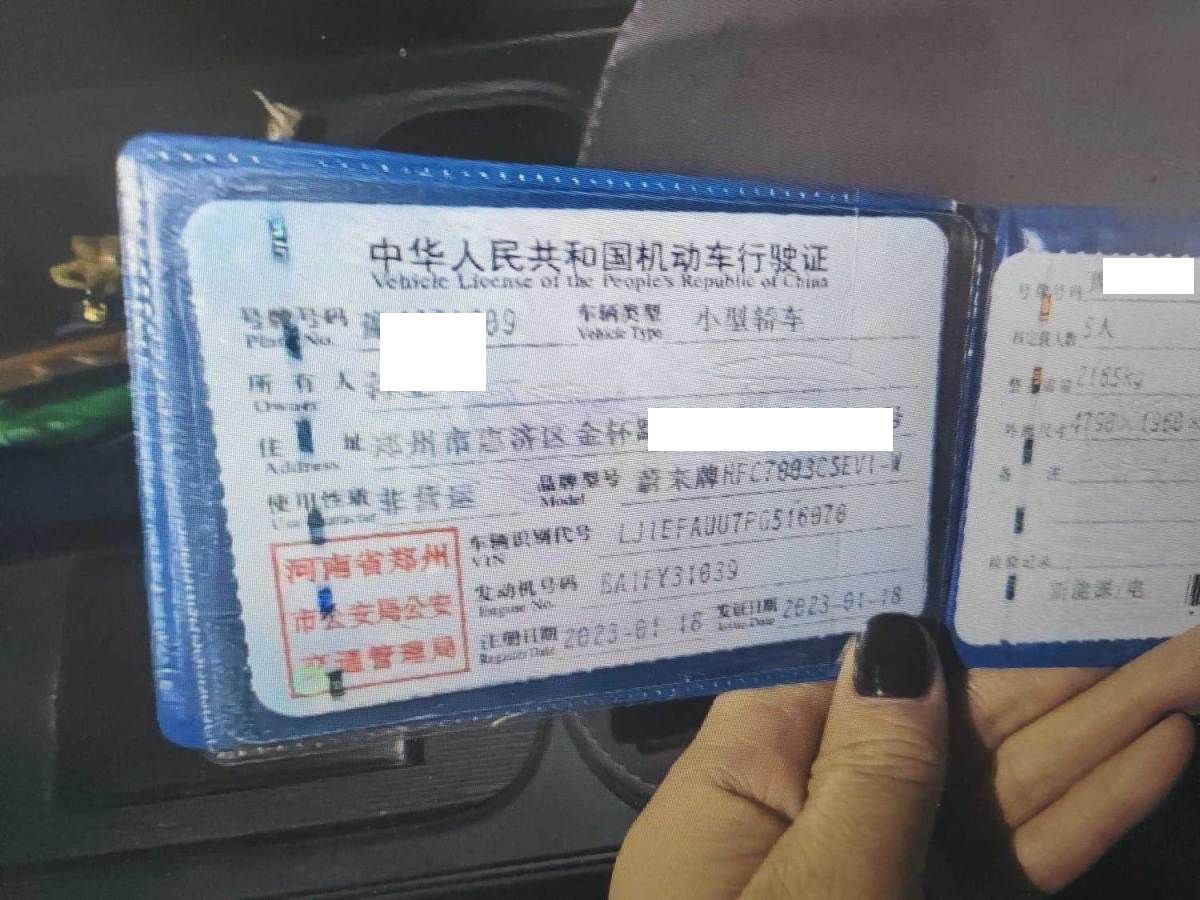 中华人民共和国机动车行驶证
Vehicle License of the People's Republic of China
号牌号码 豫 89 车辆类型 小型轿车
Plate No. Vehicle Type
所有人
Owner
住址 郑州市惠济区金杯路 号
Address
使用性质 非营运 品牌型号 蔚来牌HFC7003CSEV1-W
Use Character Model
河南省郑州
市公安局公安
交通管理局
车辆识别代号
VIN
发动机号码
Engine No.
注册日期 2023-01-18 发证日期 2023-01-18
Register Date Issue Date
号牌号码
核定载人数 5人
整备质量 2165kg
外廓尺寸
备注
检验记录
新能源/电